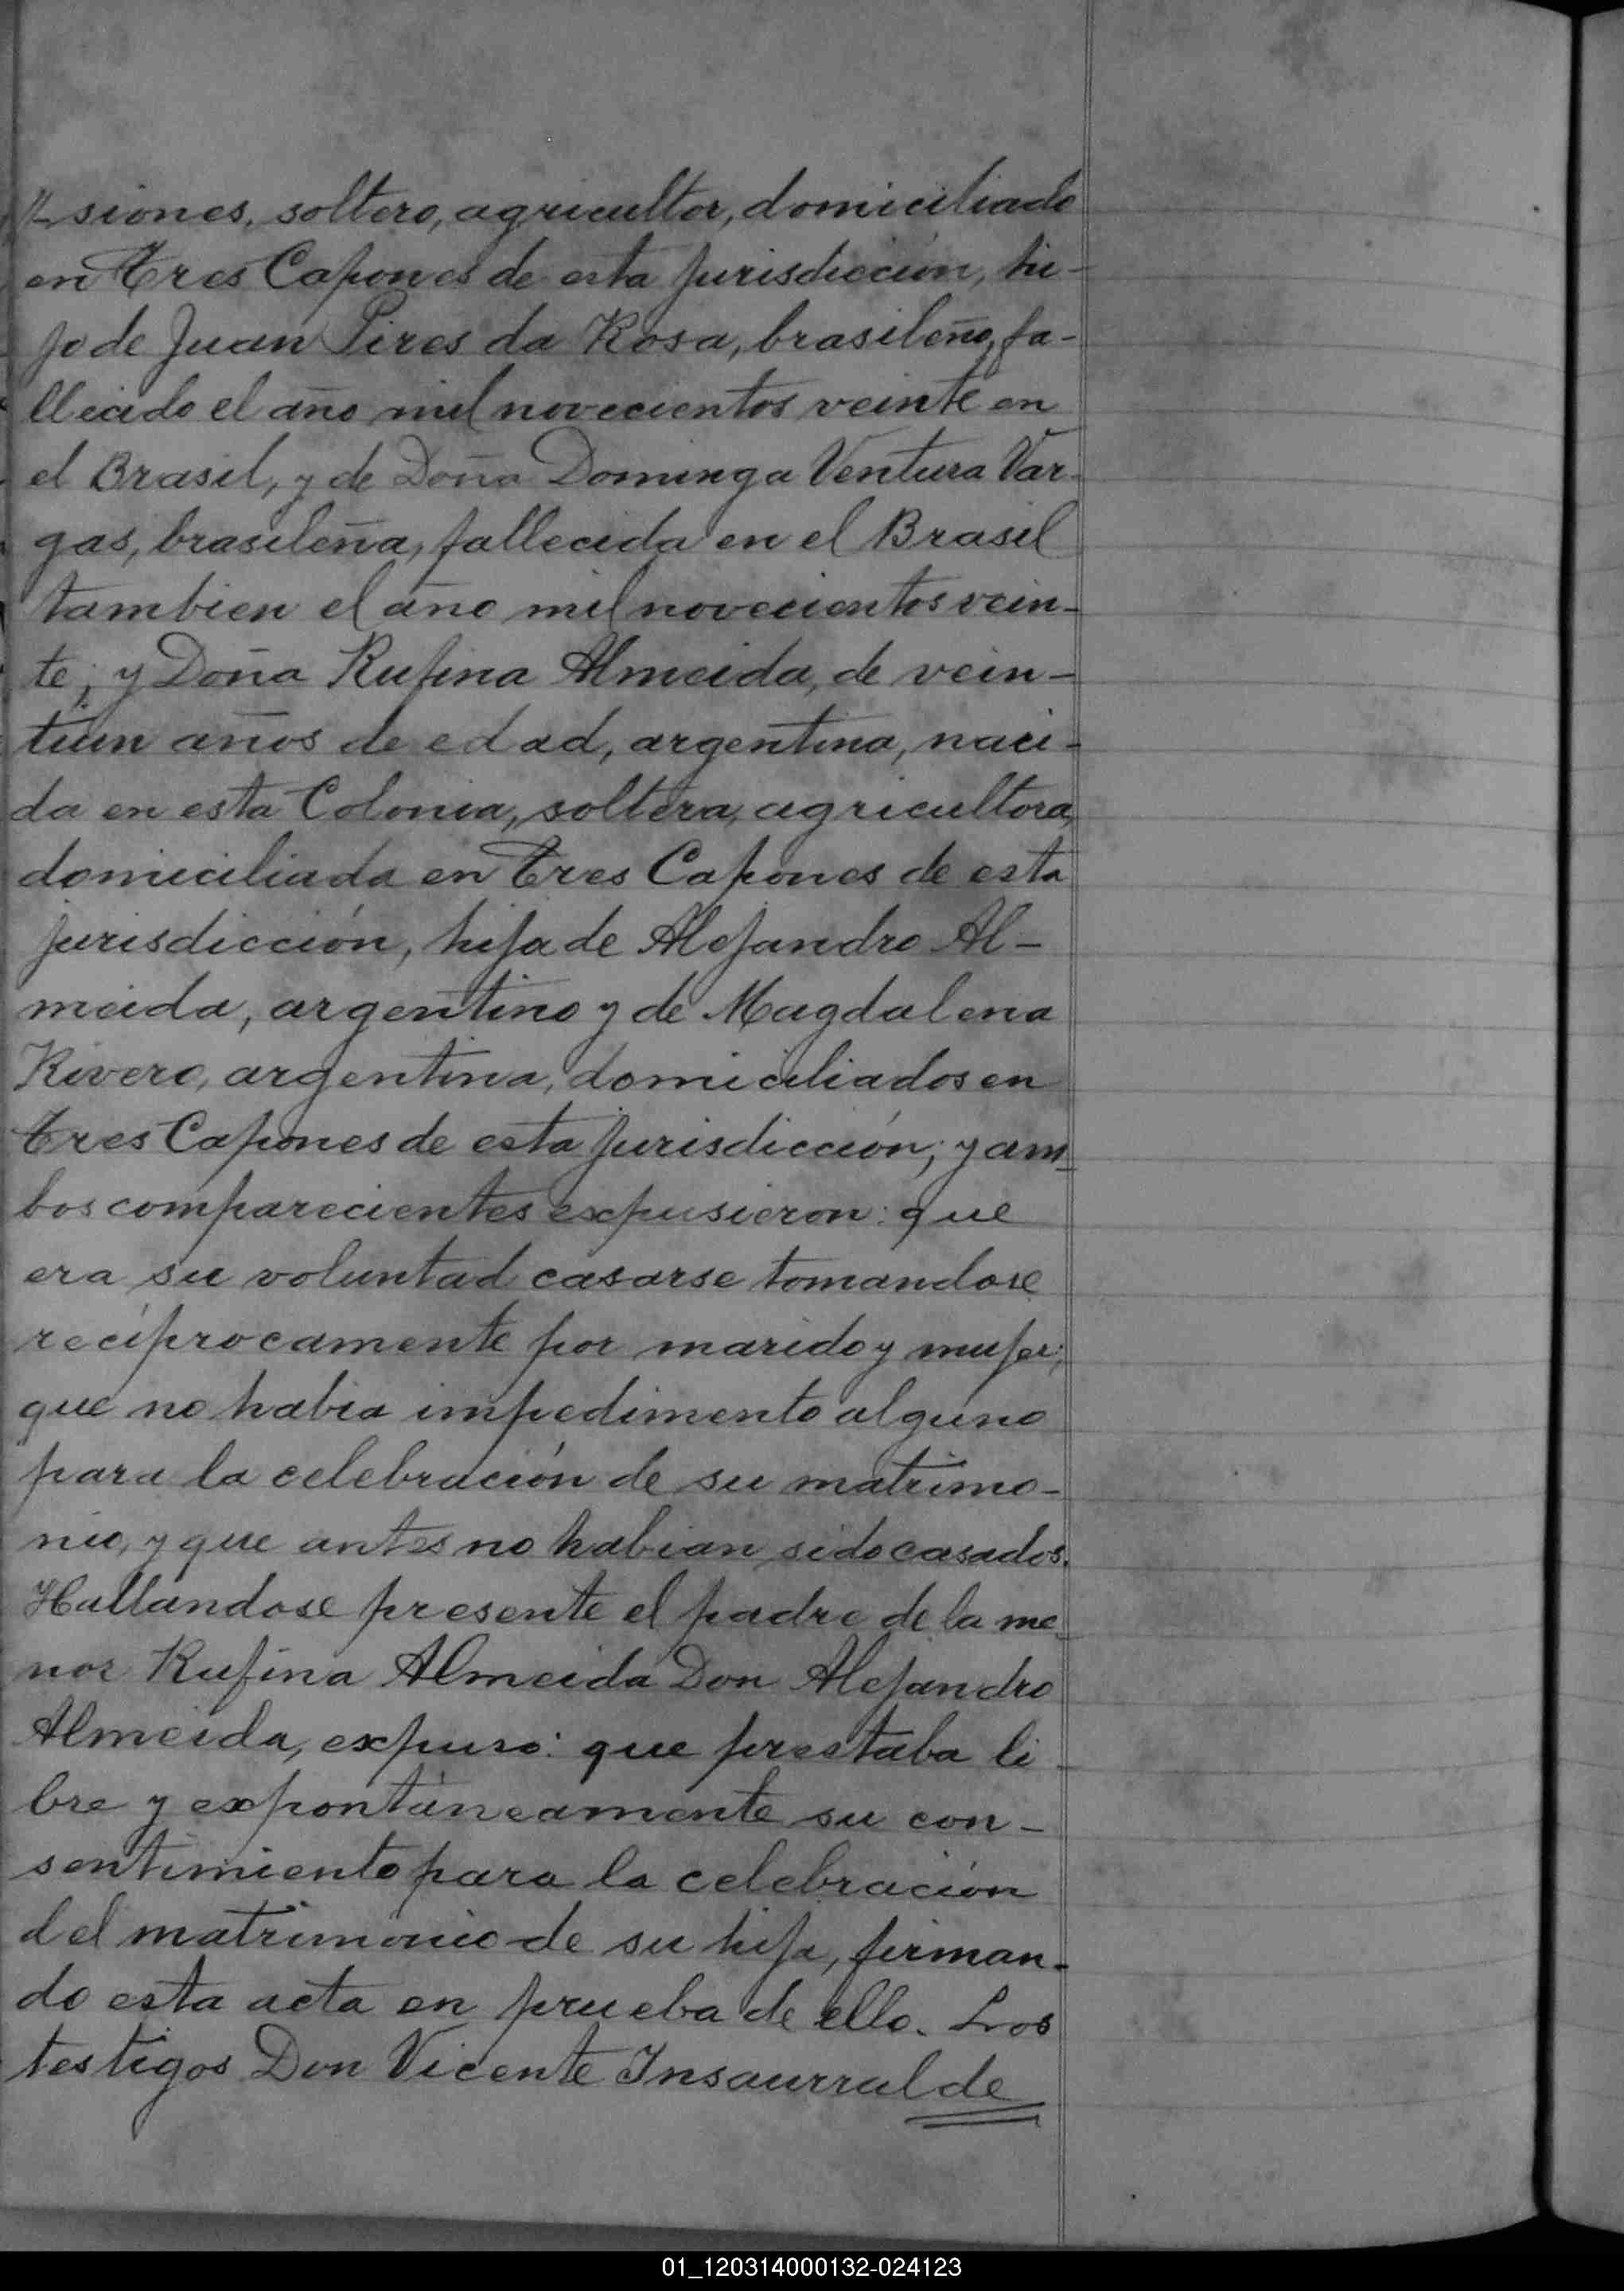 siones, soltero, agricultor, domiciliado
en Tres Capones de esta jurisdicción, hi-
jo de Juan Pires da Rosa, brasileño, fa-
llecido el año mil novecientos veinte en
el Brasil, y de Doña Dominga Ventura Var-
gas, brasileña, fallecida en el Brasil
tambien el año mil novecientos vein-
te; y Doña Rufina Almeida, de vein-
tiun años de edad, argentina, naci-
da en esta Colonia, soltera, agricultora,
domiciliada en Tres Capones de esta
jurisdicción, hija de Alejandro Al-
meida, argentino y de Magdalena
Rivero, argentina, domiciliados en
Tres Capones de esta jurisdicción; y am-
bos comparecientes expusieron: que
era su voluntad casarse tomandose
recíprocamente por marido y mujer;
que no habia impedimento alguno
para la celebración de su matrimo-
nio, y que antes no habian sido casados.
Hallandose presente el padre de la me-
nor Rufina Almeida Don Alejandro
Almeida, expuso: que prestaba li-
bre y expontáneamente su con-
sentimiento para la celebración
del matrimonio de su hija, firman-
do esta acta en prueba de ello. Los
testigos Don Vicente Insaurralde
01_120314000132-024123